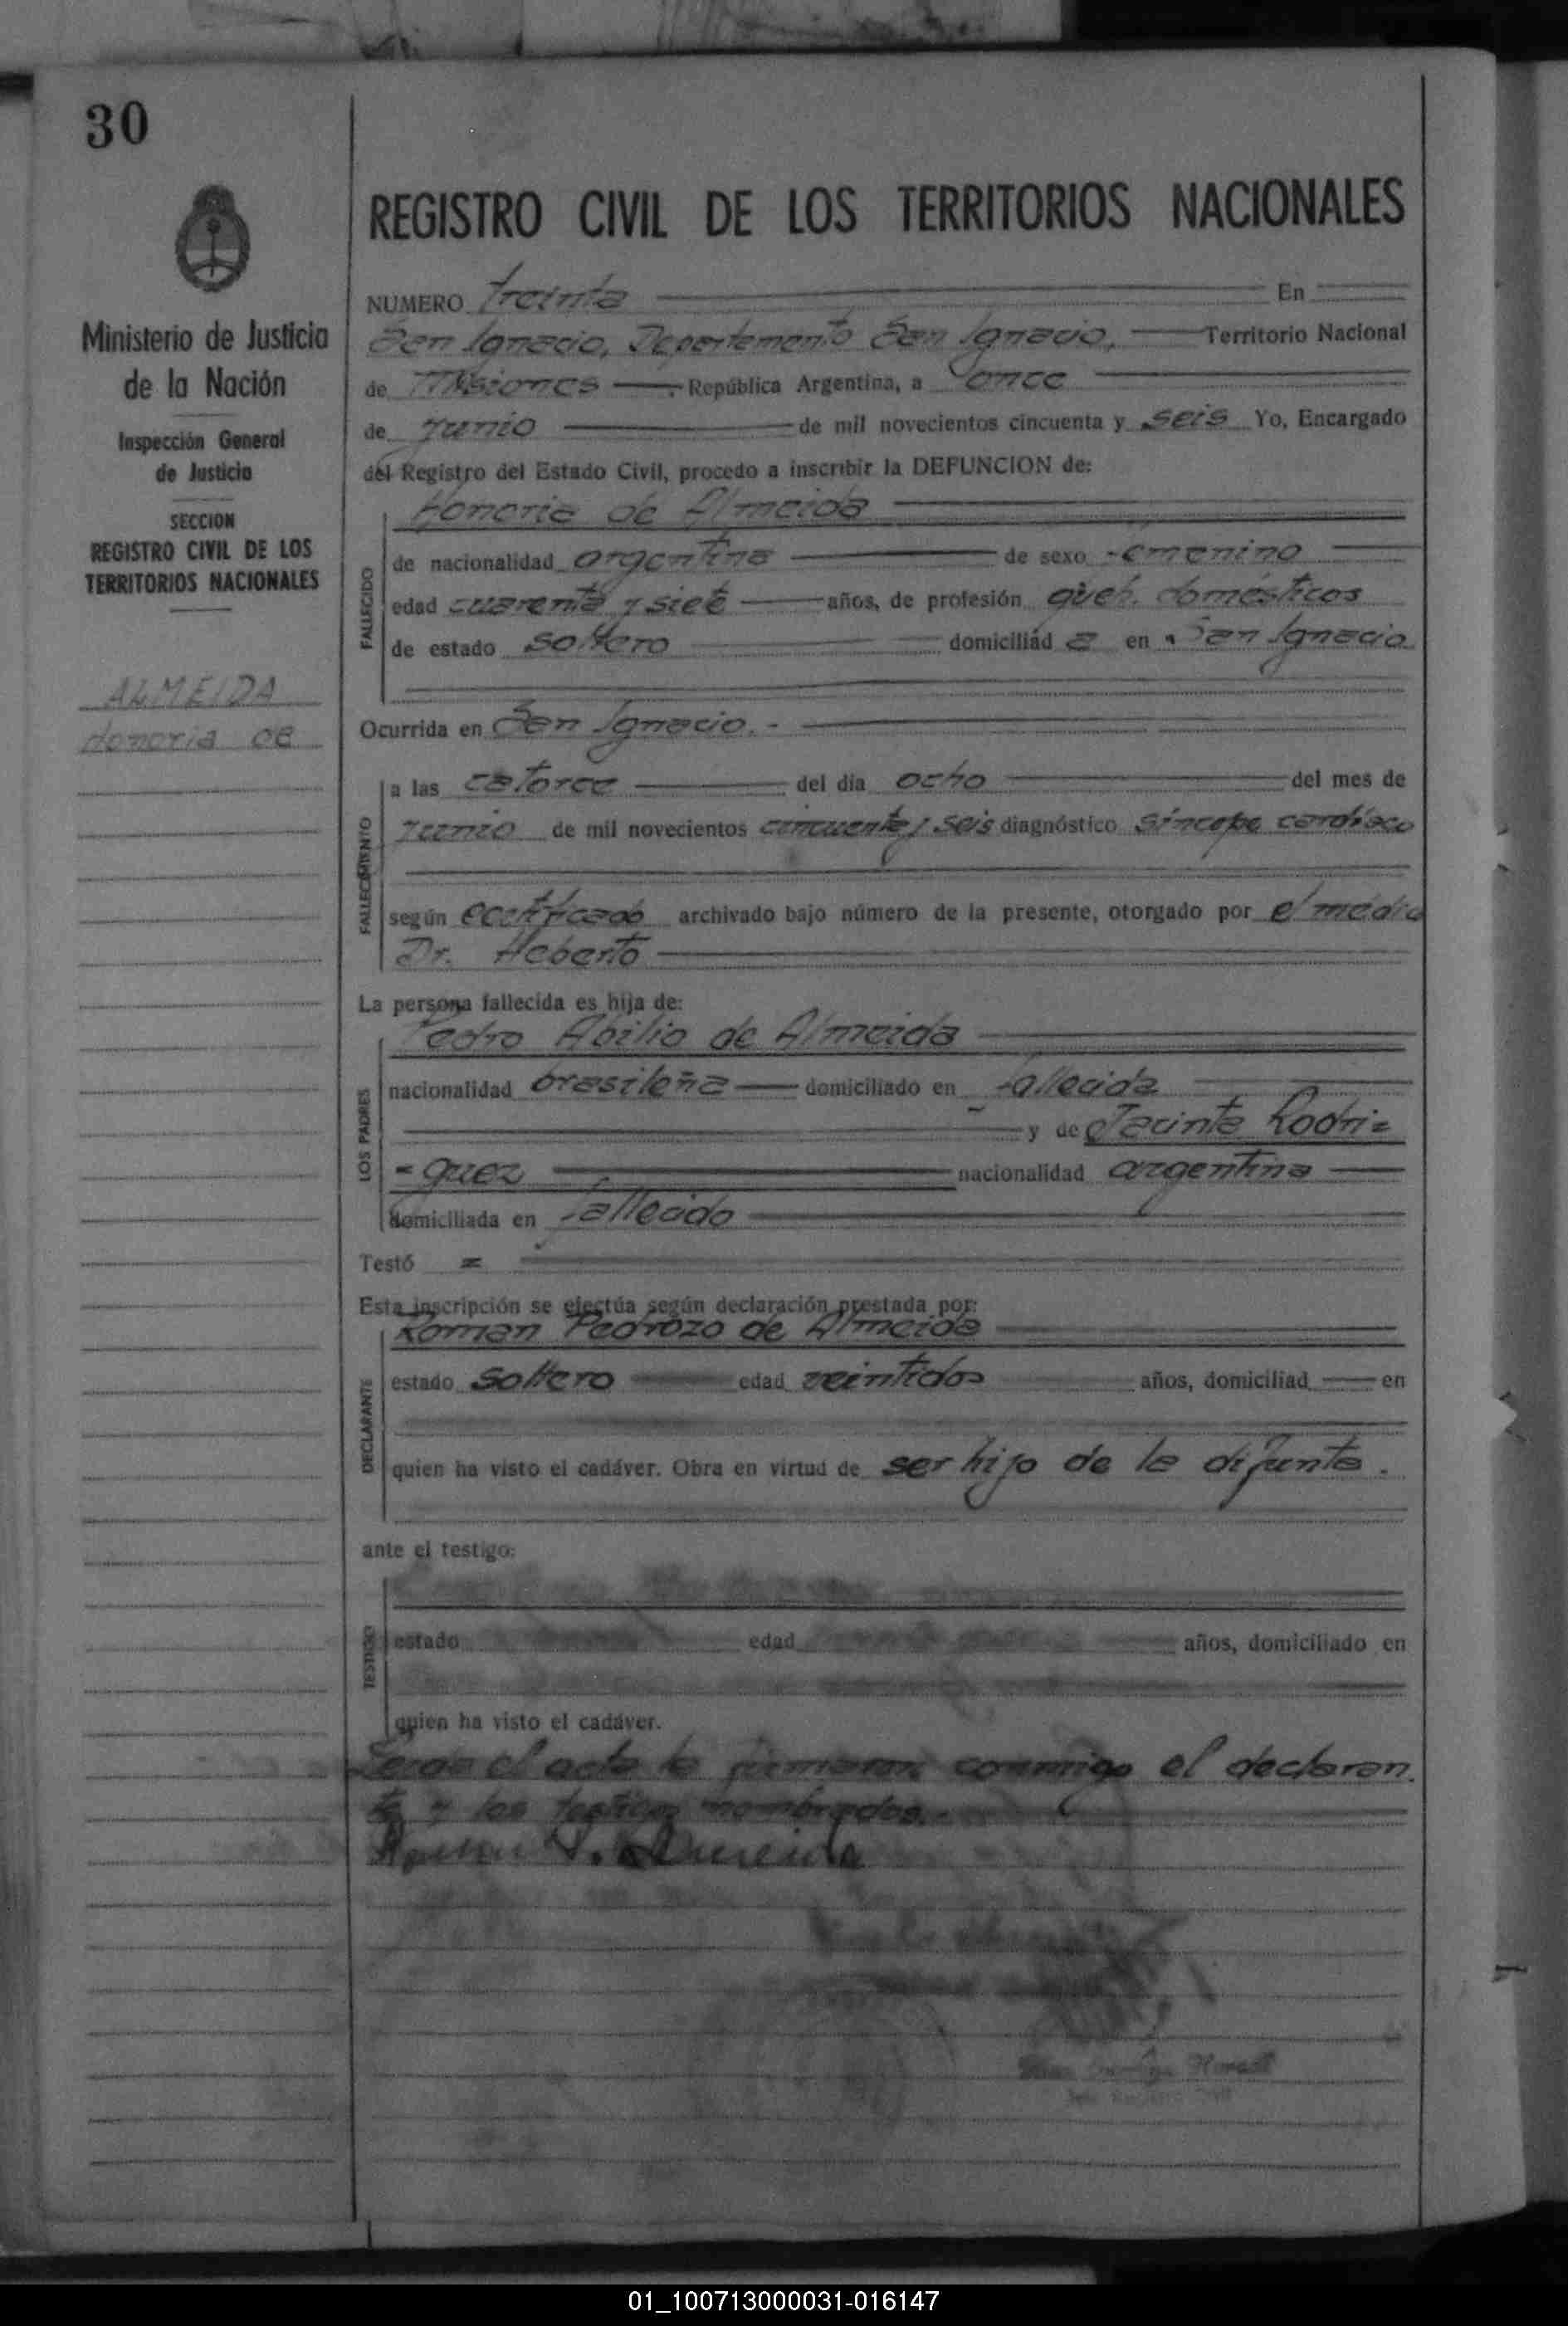 30
Ministerio de Justicia
de la Nación
Inspección General
de Justicia
SECCION
REGISTRO CIVIL DE LOS
TERRITORIOS NACIONALES
ALMEIDA
Honoria de
REGISTRO CIVIL DE LOS TERRITORIOS NACIONALES
NUMERO treinta En
San Ignacio, Departamento San Ignacio, Territorio Nacional
de Misiones República Argentina, a once
de junio de mil novecientos cincuenta y seis Yo, Encargado
del Registro del Estado Civil, procedo a inscribir la DEFUNCION de:
Honoria de Almeida
FALLECIDO
de nacionalidad argentina de sexo femenino
edad cuarenta y siete años, de profesión queh. domésticos
de estado soltero domiciliad a en San Ignacio
Ocurrida en San Ignacio.-
FALLECIMIENTO
a las catorce del día ocho del mes de
junio de mil novecientos cincuenta y seis diagnóstico síncope cardíaco
según certificado archivado bajo número de la presente, otorgado por el médico
Dr. Heberto
La persona fallecida es hija de:
LOS PADRES
Pedro Abilio de Almeida
nacionalidad brasileña domiciliado en fallecida
y de Jacinta Rodri=
=guez nacionalidad argentina
domiciliada en fallecido
Testó =
Esta inscripción se efectúa según declaración prestada por:
DECLARANTE
Roman Pedrozo de Almeida
estado soltero edad veintidos años, domiciliad en
quien ha visto el cadáver. Obra en virtud de ser hijo de la difunta.
ante el testigo:
TESTIGO
estado edad años, domiciliado en
quien ha visto el cadáver.
Leida el acta la firmaron conmigo el declaran
te y los testigos nombrados.-
Roman P. Almeida
01_100713000031-016147